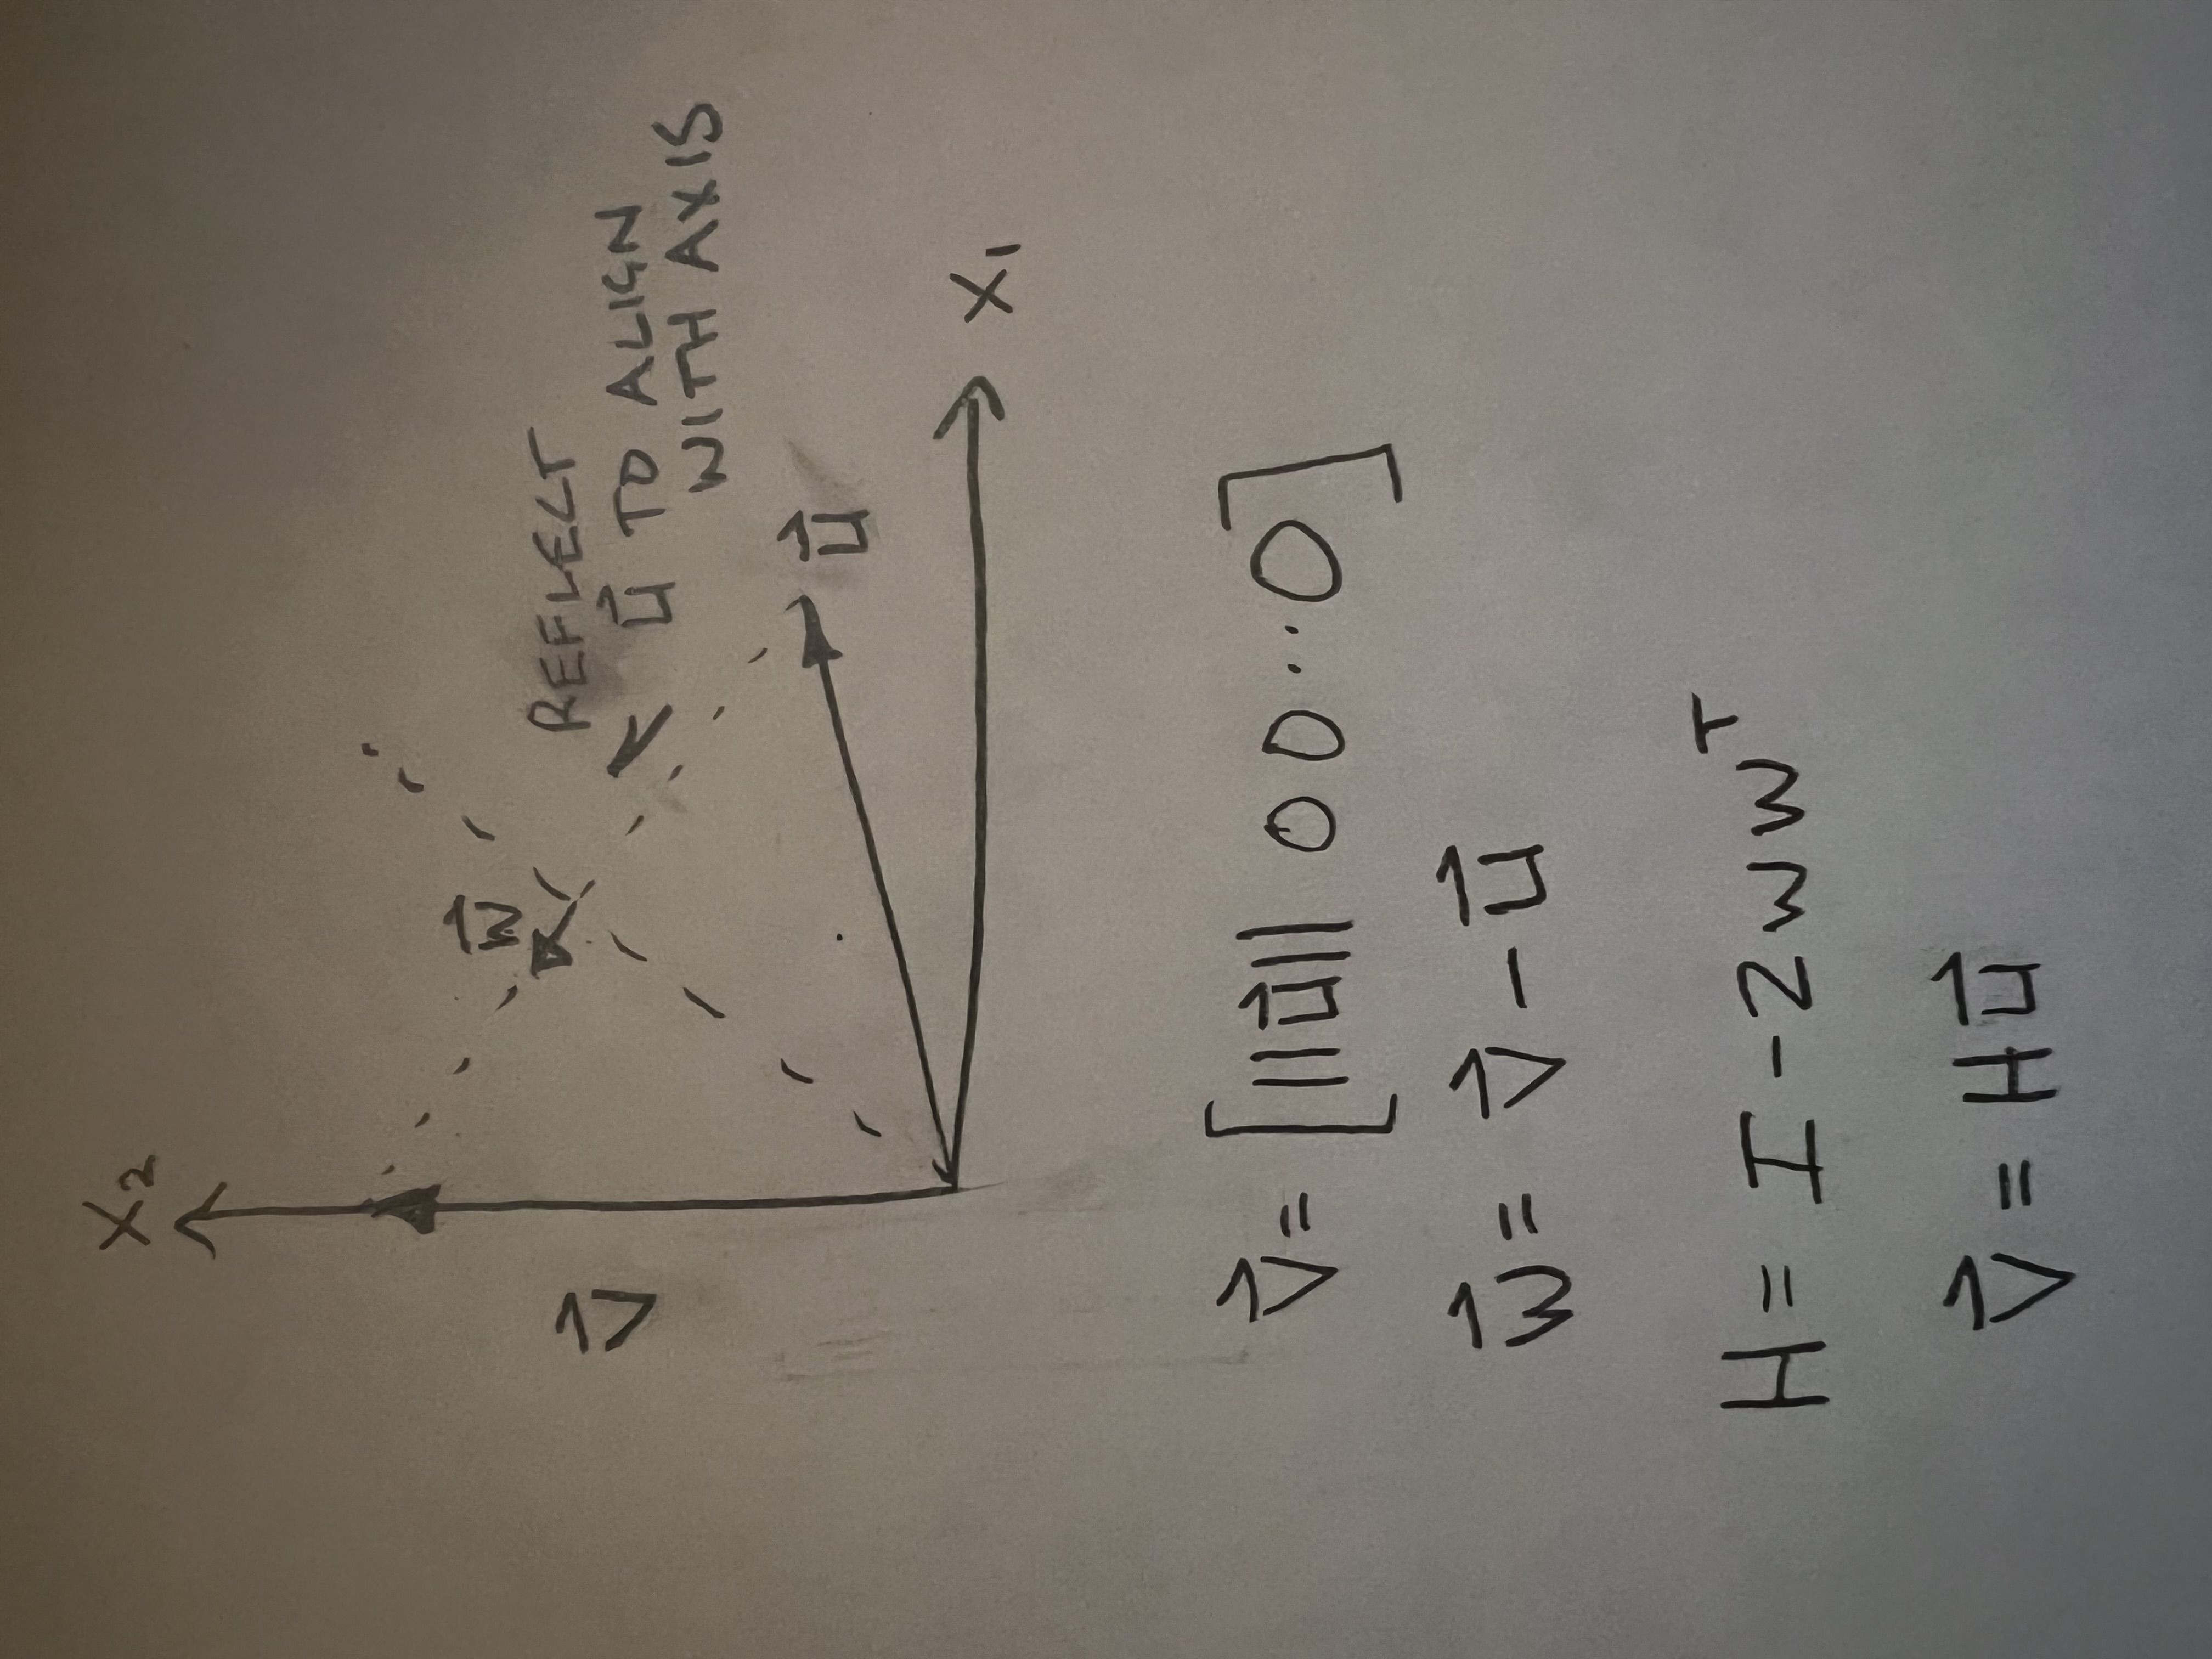 X₂
w⃗
REFLECT
v⃗
u⃗ TO ALIGN
WITH AXIS
u⃗
X₁
v⃗ = [||u⃗|| 0 0 ·· 0]
w⃗ = v⃗ - u⃗
H = I - 2wwᵀ
v⃗ = Hu⃗